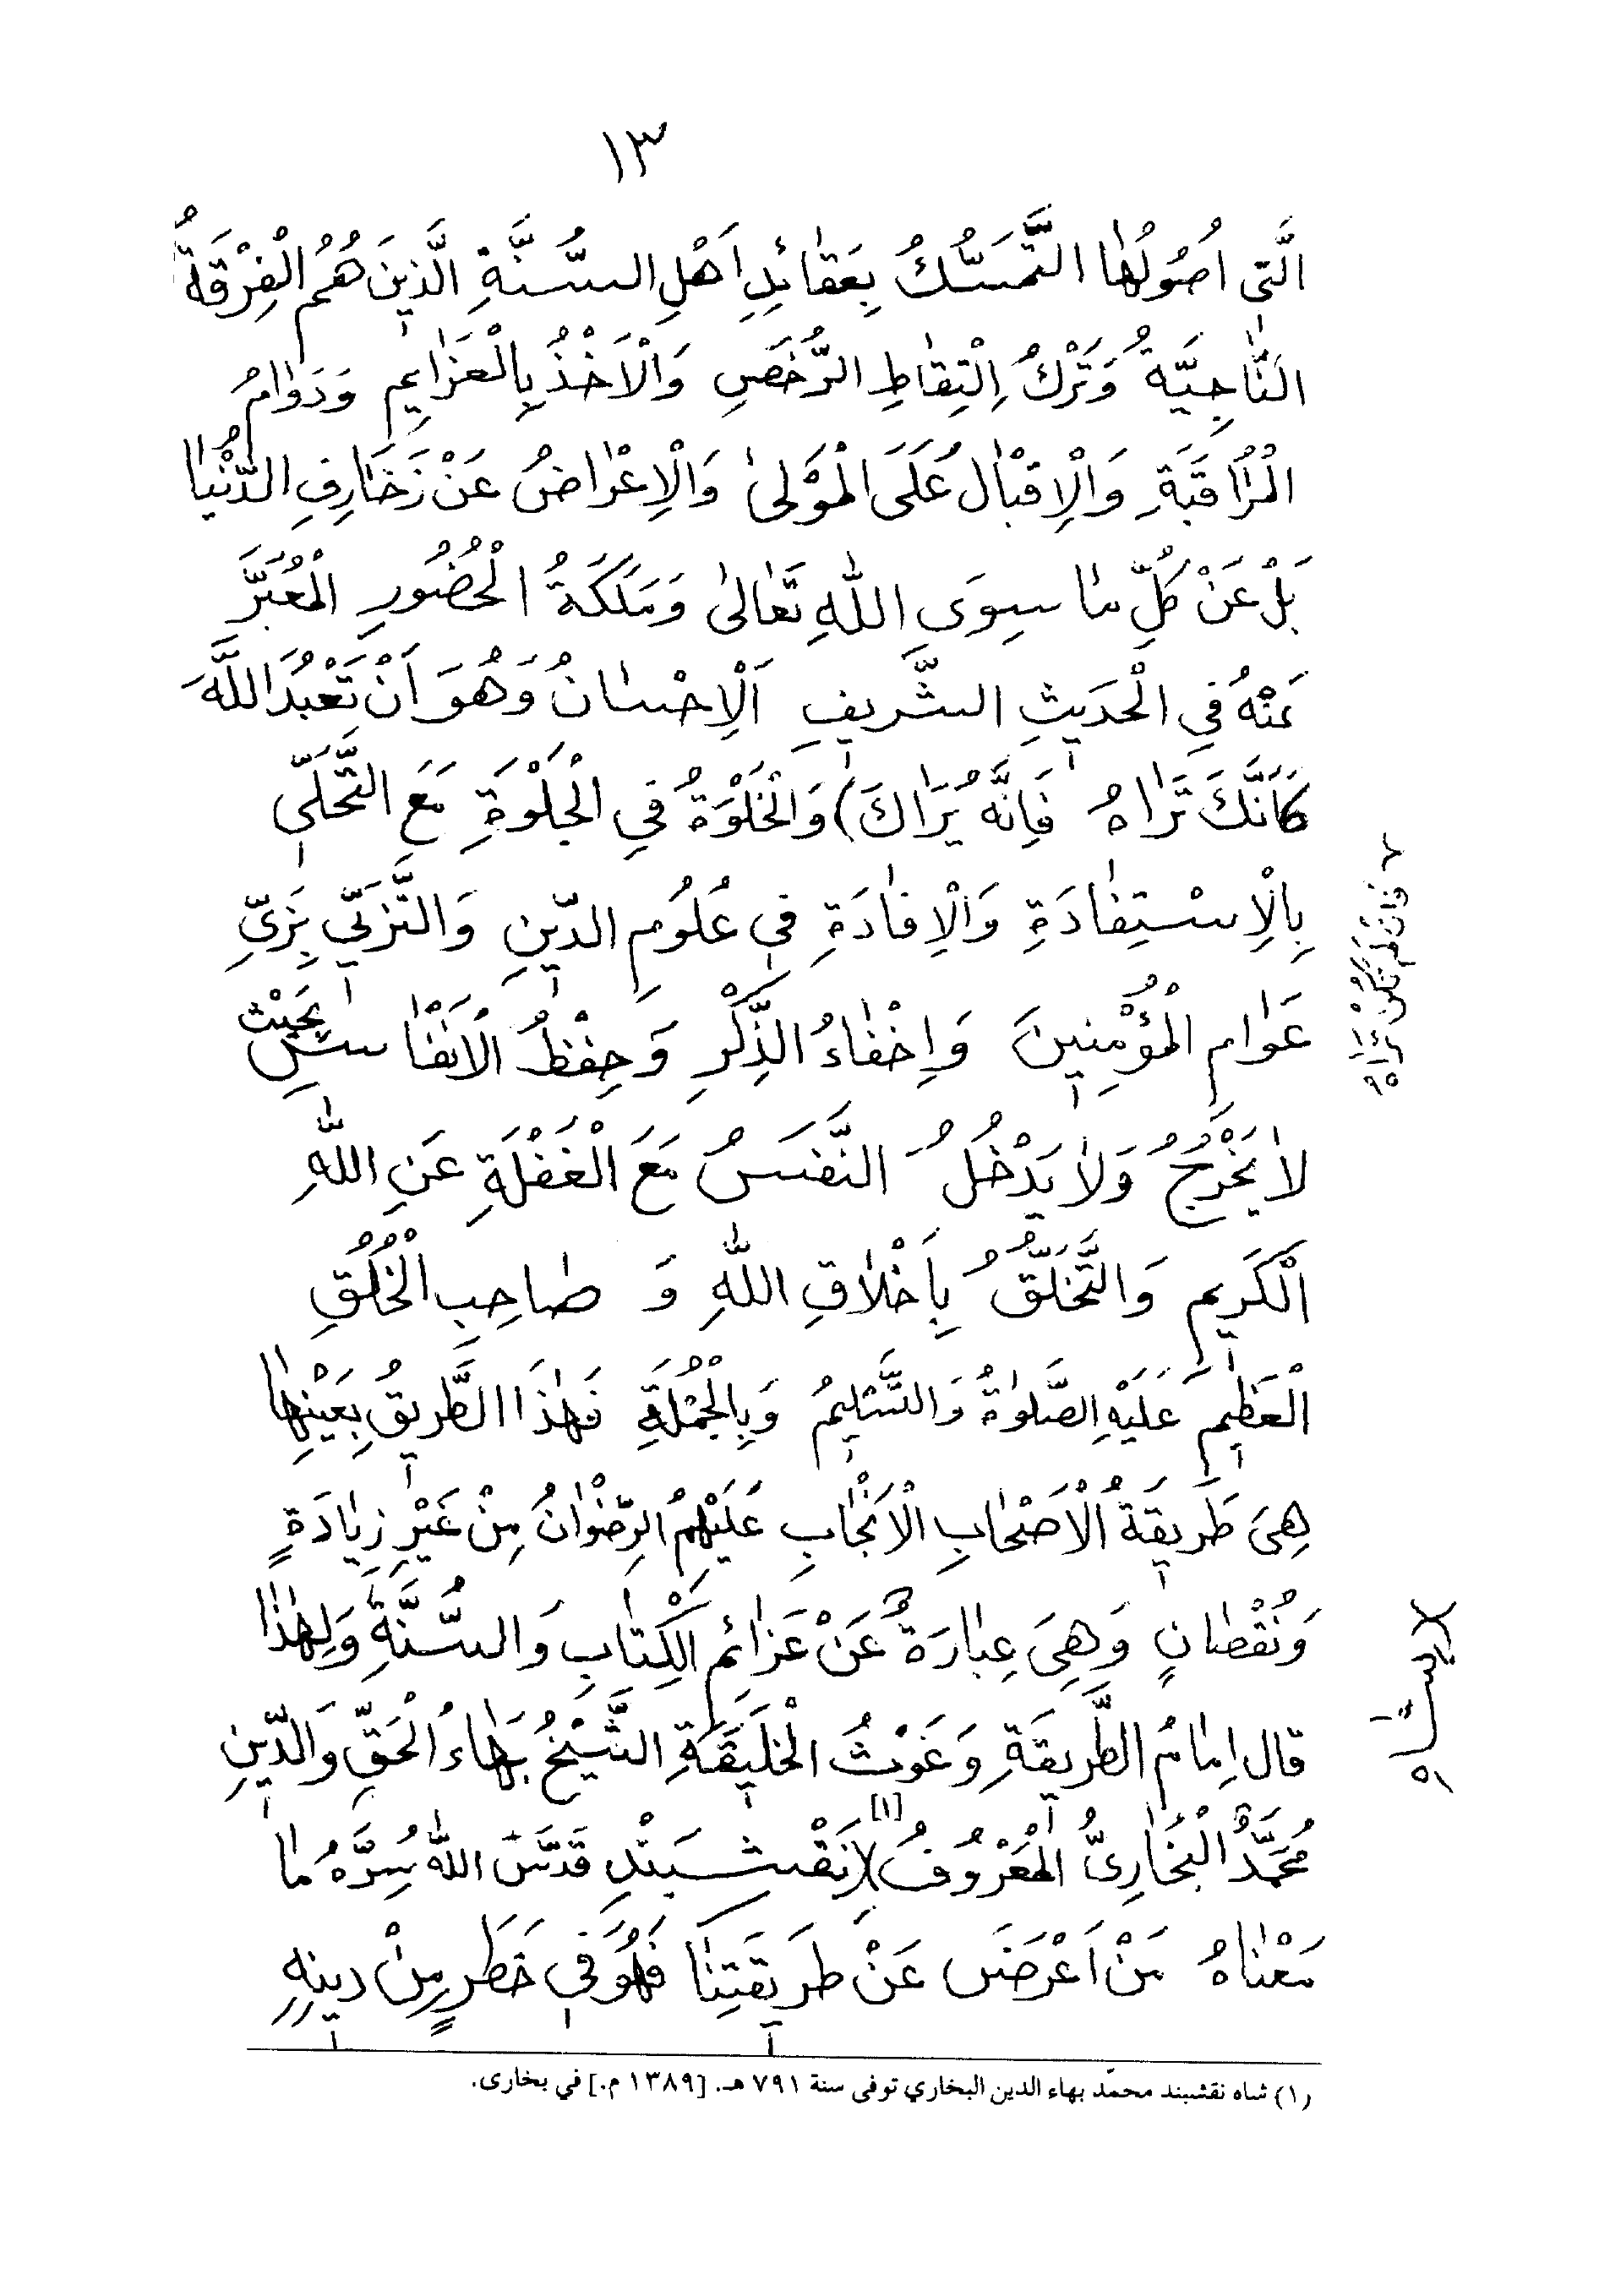 ١٣
الَّتِى اُصُولُهَا التَّمَسُّكُ بِعَقَائِدِ اَهْلِ السُّنَّةِ الَّذِينَ هُمُ الْفِرْقَةُ
النَّاجِيَّةُ وَتَرْكُ اِلْتِقَاطِ الرُّخَصِ وَالْاَخْذُ بِالْعَزَايِمِ وَدَوَامُ
الْمُرَاقَبَةِ وَالْاِقْبَالُ عَلَى الْمَوْلٰى وَالْاِعْرَاضُ عَنْ زَخَارِفِ الدُّنْيَا
بَلْ عَنْ كُلِّ مَا سِوَى اللّٰهِ تَعَالٰى وَمَلَكَةُ الْحُضُورِ الْمُعَبَّرِ
عَنْهُ فِى الْحَدِيثِ الشَّرِيفِ اَلْاِحْسَانُ وَهُوَ اَنْ تَعْبُدَ اللَّهَ
كَاَنَّكَ تَرَاهُ فَاِنَّهُ يَرَاكَ) وَالْخَلْوَةُ فِى الْجَلْوَةِ مَعَ التَّحَلِّى
بِالْاِسْتِفَادَةِ وَالْاِفَادَةِ فِى عُلُومِ الدِّينِ وَالتَّزَيِّى بِزَىِّ
عَوَامِ الْمُؤْمِنِينَ وَاِخْفَاءُ الذِّكْرِ وَحِفْظُ الْاَنْفَاسِ بِحَيْثُ
لَا يَخْرُجُ وَلَا يَدْخُلُ النَّفَسُ مَعَ الْغَفْلَةِ عَنِ اللّٰهِ
الْكَرِيمِ وَالتَّخَلُّقُ بِاَخْلَاقِ اللّٰهِ وَ صَاحِبِ الْخُلُقِ
الْعَظِيمِ عَلَيْهِ الصَّلٰوةُ وَالتَّسْلِيمُ وَبِالْجُمْلَةِ فَهٰذَا الطَّرِيقُ بِعَيْنِهَا
هِىَ طَرِيقَةُ الْاَصْحَابِ الْاَنْجَابِ عَلَيْهِمُ الرِّضْوَانُ مِنْ غَيْرِ زِيَادَةٍ
وَنُقْصَانٍ وَهِىَ عِبَارَةٌ عَنْ عَزَائِمِ الْكِتَابِ وَالسُّنَّةِ وَلِهٰذَا
قَالَ اِمَامُ الطَّرِيقَةِ وَغَوْثُ الْخَلِيقَةِ الشَّيْخُ بَهَاءُ الْحَقِّ وَالدِّينِ
مُحَمَّدٌ الْبُخَارِىُّ الْمَعْرُوفُ [١] (بِنَقْشِبَنْدِ قَدَّسَ اللّٰهُ سِرَّهُ مَا
مَعْنَاهُ مَنْ اَعْرَضَ عَنْ طَرِيقَتِنَا فَهُوَ فِى خَطَرٍ مِنْ دِينِهِ
فَاِنْ لَمْ تَكُنْ تَرَاهُ
(١) شاه نقشبند محمّد بهاء الدين البخاري توفى سنة ٧٩١ هـ. [١٣٨٩ م.] في بخارى.